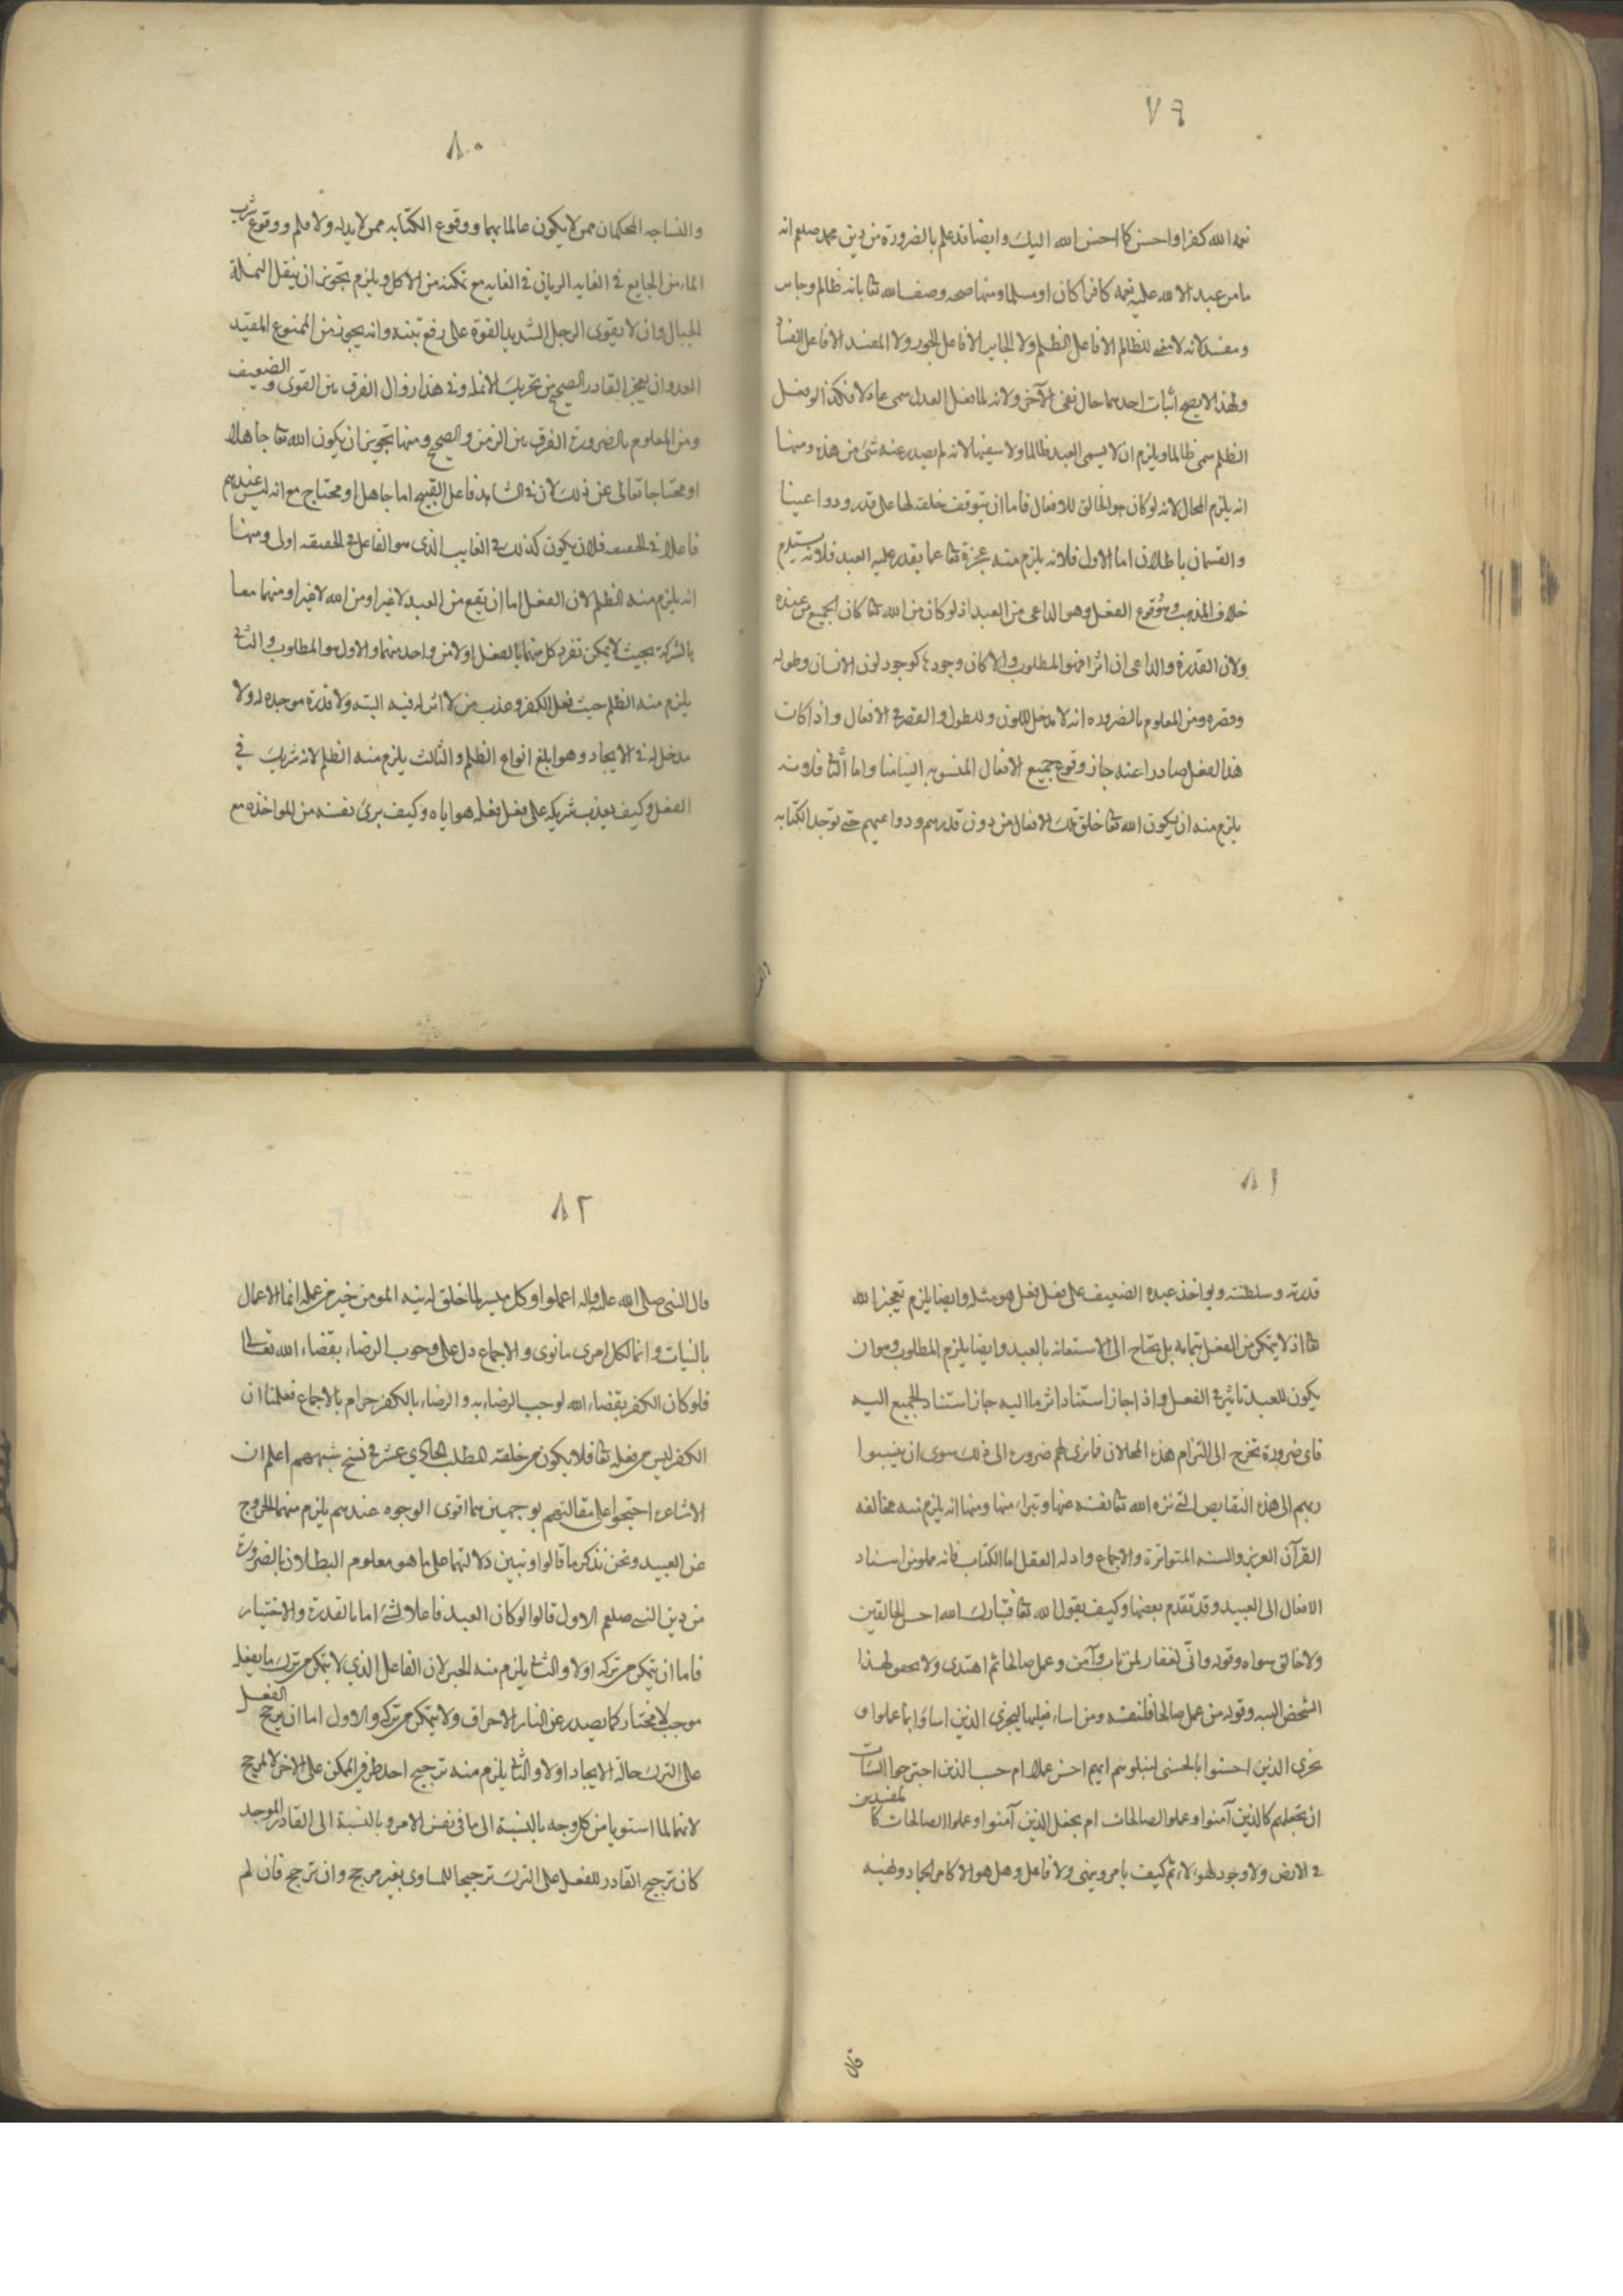 ٧٩
نعمة الله كفرا واحسن كما احسن الله اليك وايضا قد علم بالضرورة من دين محمد صلعم انه
ما من عبد الا لله عليه نعمه كافرا كان او مسلما ومنها صحه وصف الله تعا بانه ظالم وجاير
ومفسد لانه لا معنى للظالم الا فاعل الظلم ولا الجاير الا فاعل الجور ولا المفسد الا فاعل الفساد
ولهذا لا يصح اثبات احدهما حال نفى الآخر ولانه لما فعل العدل سمى عادلا فكذا لو فعل
الظلم سمى ظالما ويلزم ان لا يسمى العبد ظالما ولا سفيها لانه لم يصدر عنه شئ من هذه ومنها
انه يلزم المحال لانه لو كان هو الخالق للافعال فاما ان يتوقف خلقه لها على قدرنا ودواعينا
والقسمان باطلان اما الاول فلانه يلزم منه عجزه تعا عما يقدر عليه العبد فلانه يستلزم
خلاف المذهب وقوع الفعل وهو الداعى من العبد اذ لو كان من الله تعا كان الجميع من عنده
ولان القدرة والداعى ان اثرا فهو المطلوب والا كان وجودها كوجود لون الانسان وطوله
وقصره ومن المعلوم بالضروره انه لا مدخل للون وللطول والقصر فى الافعال واذا كان
هذا الفعل صادرا عنه جاز وقوع جميع الافعال المنسوبه الينا منا واما الثانى فلانه
يلزم منه ان يكون الله تعا خلق تلك الافعال من دون قدرهم ودواعيهم حتى توجد الكتابه
٨٠
والنساجه المحكمان ممن لا يكون عالما بهما ووقوع الكتابه ممن لا يد له ولا قلم ووقوع شرب
الماء من الجايع فى الغايه الريان فى الغايه مع تمكنه من الاكل ويلزم تجويز ان ينقل النملة
الجبال وان لا يقوى الرجل الشديد القوة على رفع تبنه وانه يجوز من الممنوع المقيد
العدو وان يعجز القادر الصحيح من تحريك الانمله وفى هذا زوال الفرق بين القوى والضعيف
ومن المعلوم بالضرورة الفرق بين الزمن والصحيح ومنها تجويز ان يكون الله تعا جاهلا
او محتاجا تعالى عن ذلك لان فى الشاهد فاعل القبيح اما جاهل او محتاج مع انه ليس عندهم
فاعلا فى الحقيقه فلان يكون كذلك فى الغايب الذى هو الفاعل فى الحقيقه اولى ومنها
انه يلزم منه الظلم لان الفعل اما ان يقع من العبد لا غير او من الله لا غير او منهما معا
بالشركة بحيث لا يمكن تفرد كل منهما بالفعل او لا من واحد منهما والاول هو المطلوب والثانى
يلزم منه الظلم حيث فعل الكفر وعذب من لا اثر له فيه البته ولا قدرة موجده له ولا
مدخل له فى الايجاد وهو ابلغ انواع الظلم والثالث يلزم منه الظلم لانه شريك فى
الفعل وكيف يعذب شريكه على فعل فعله هو اياه وكيف برئ نفسه من المواخذه مع
٨١
قدرته وسلطنته ويواخذ عبده الضعيف على فعل فعل هو مثله وايضا يلزم تعجيز الله
تعا اذ لا يتمكن من الفعل بتمامه بل يحتاج الى الاستعانه بالعبد وايضا يلزم المطلوب وهو ان
يكون للعبد تاثير فى الفعل واذا جاز استناد اثر ما اليه جاز استناد الجميع اليه
فاى ضرورة تخرج الى التزام هذه المحالات فما نرى لهم ضرورة الى ذلك سوى ان ينسبوا
ربهم الى هذه النقايص التى نزه الله تعا نفسه عنها وتبرا منها ومنها انه يلزم منه مخالفه
القرآن العزيز والسنه المتواترة والاجماع وادله العقل اما الكتاب فانه مملو من اسناد
الافعال الى العبيد وقد تقدم بعضها وكيف يقول الله تعا فتبارك الله احسن الخالقين
ولا خالق سواه وقوله وانى لغفار لمن تاب وآمن وعمل صالحا ثم اهتدى ولا تحقق لهذا
الشخص البته وقوله من عمل صالحا فلنفسه ومن اساء فعليها ليجزى الذين اساؤا بما عملوا و
يجزى الذين احسنوا بالحسنى لنبلوهم ايهم احسن عملا ام حسب الذين اجترحوا السيئات
ان نجعلهم كالذين آمنوا وعملوا الصالحات ام نجعل الذين آمنوا وعملوا الصالحات كالمفسدين
فى الارض ولا وجود لهؤلاء ثم كيف يامر وينهى ولا فاعل وهل هو الا كامر الجماد ونهيه
قال
٨٢
قال النبى صلى الله عليه واله اعملوا وكل ميسر لما خلق له نية المومن خير من عمله انما الاعمال
بالنيات وانما لكل امرئ ما نوى والاجماع دل على وجوب الرضاء بقضاء الله تعالى
فلو كان الكفر بقضاء الله لوجب الرضاء به والرضاء بالكفر حرام بالاجماع فعلمنا ان
الكفر ليس من فعله تعا فلا يكون من خلقه المطلب الحادى عشر فى نسخ شبههم اعلم ان
الاشاعرة احتجوا على مقالتهم بوجهين هما اقوى الوجوه عندهم يلزم منهما الخروج
عن العبيد ونحن نذكر ما قالوا ونبين دلالتهما على ما هو معلوم البطلان بالضرورة
من دين النبى صلعم الاول قالوا لو كان العبد فاعلا لشئ اما بالقدرة والاختيار
فاما ان يتمكن من تركه اولا والثانى يلزم منه الجبر لان الفاعل الذي لا يتمكن من ترك ما يفعله
موجب لا مختار كما يصدر عن النار الاحراق ولا يتمكن من تركه والاول اما ان يرجح الفعل
على الترك حالة الايجاد اولا والثانى يلزم منه ترجيح احد طرفى الممكن على الاخر لا لمرجح
لانهما لما استويا من كل وجه بالنسبة الى ما فى نفس الامر وبالنسبة الى القادر الموجد
كان ترجيح القادر للفعل على الترك ترجيحا للمساوى بغير مرجح وان ترجح فان لم